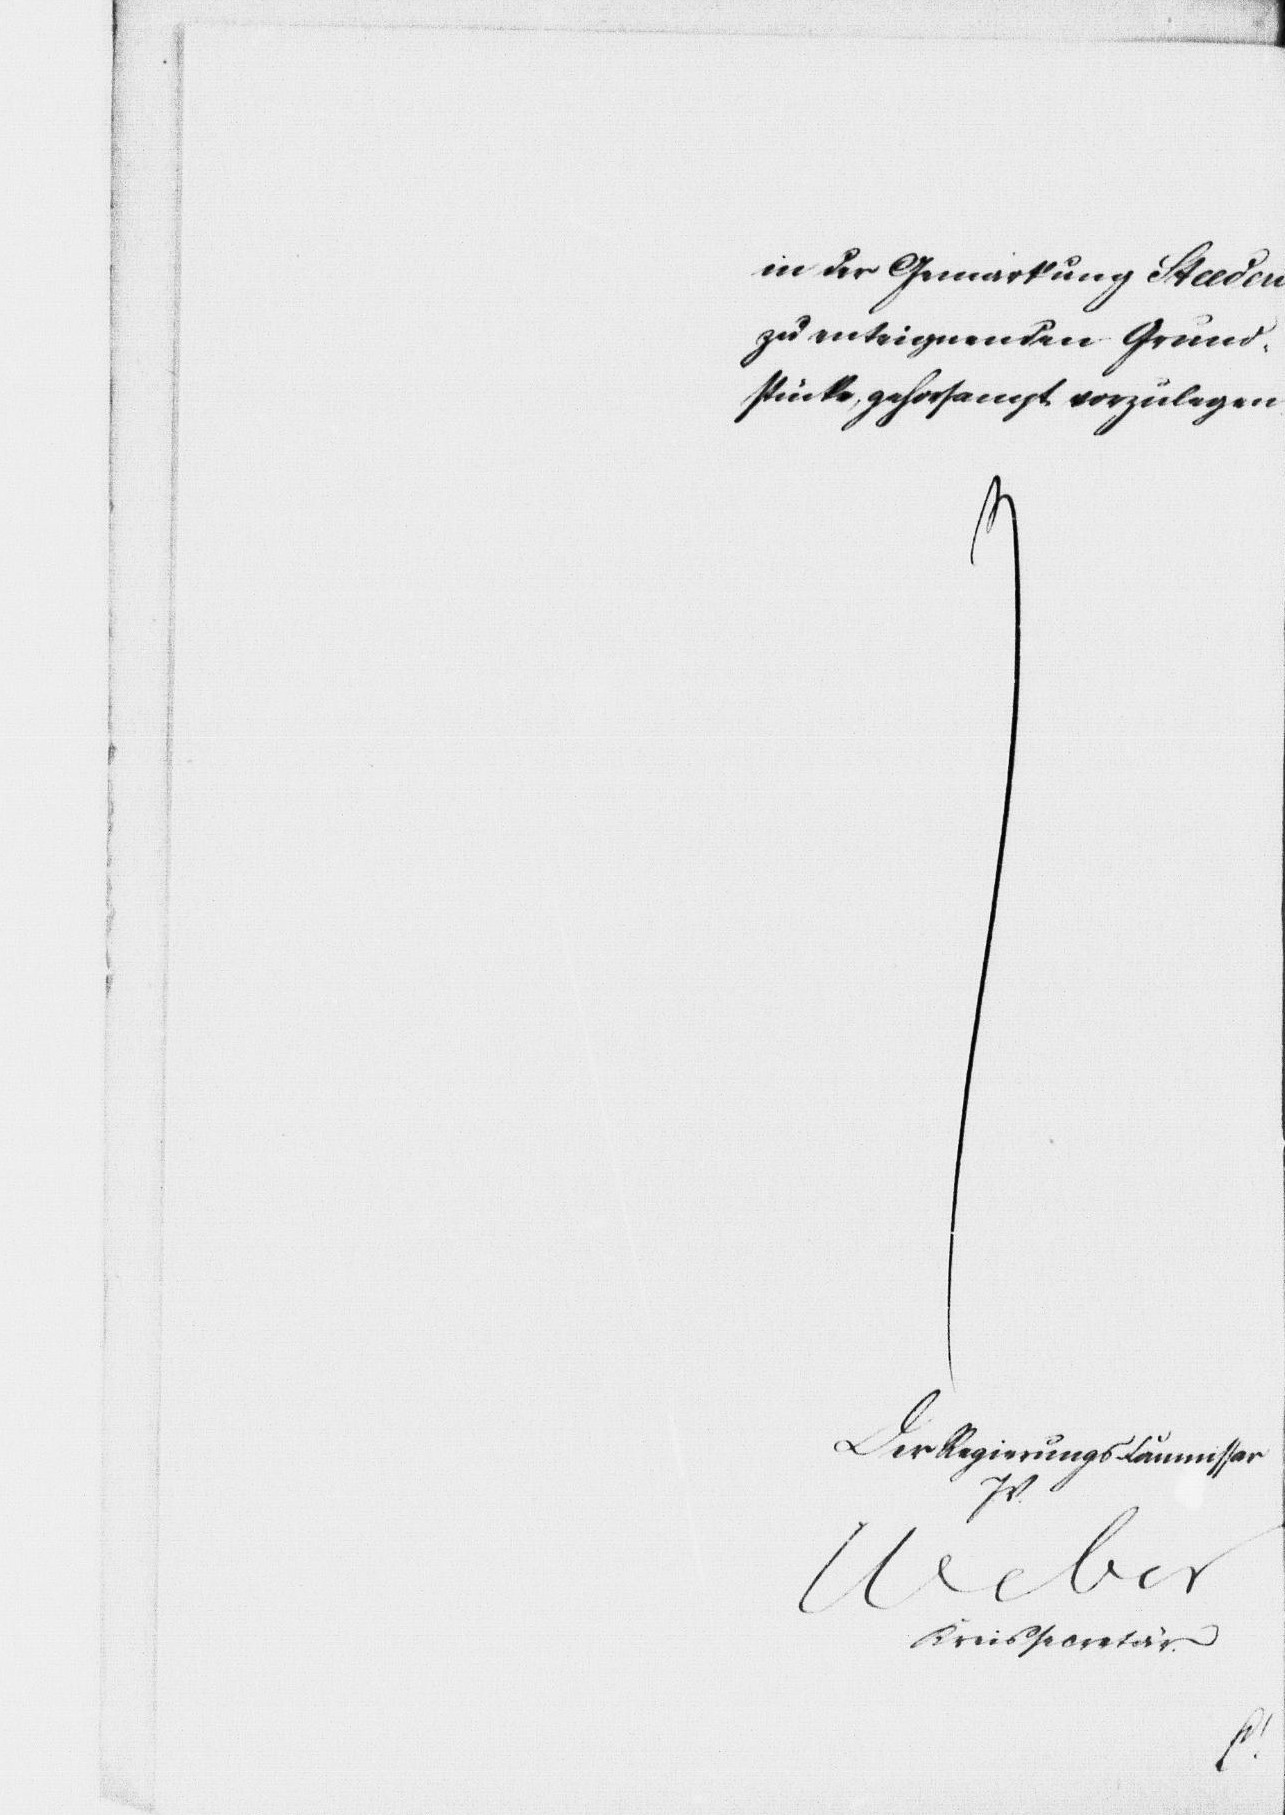 in der Gemarkung Steeden
zu enteignenden Grund-
stücke, gehorsamst vorzulegen
Der Regierungs-Commissar
JV.
Weber
Kreissecretär.